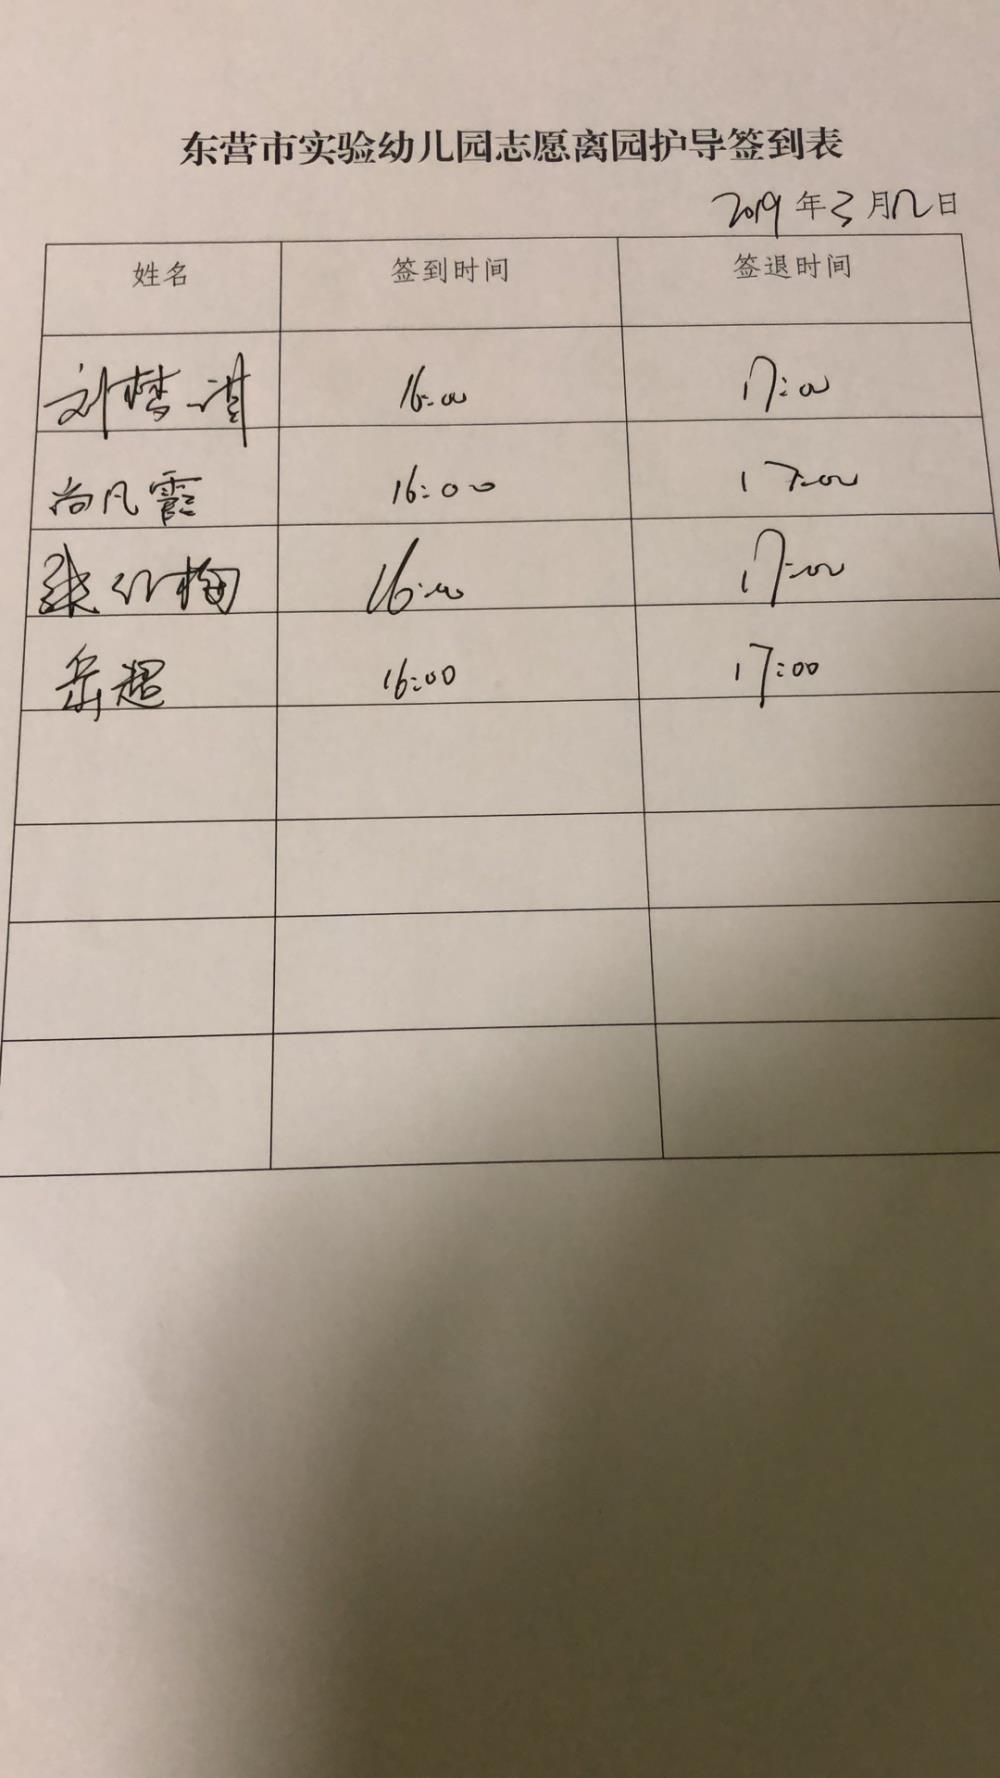 东营市实验幼儿园志愿离园护导签到表
2019年3月12日
姓名 签到时间 签退时间
刘梦淇 16:00 17:00
尚凡霞 16:00 17:00
16:00 17:00
岳超 16:00 17:00